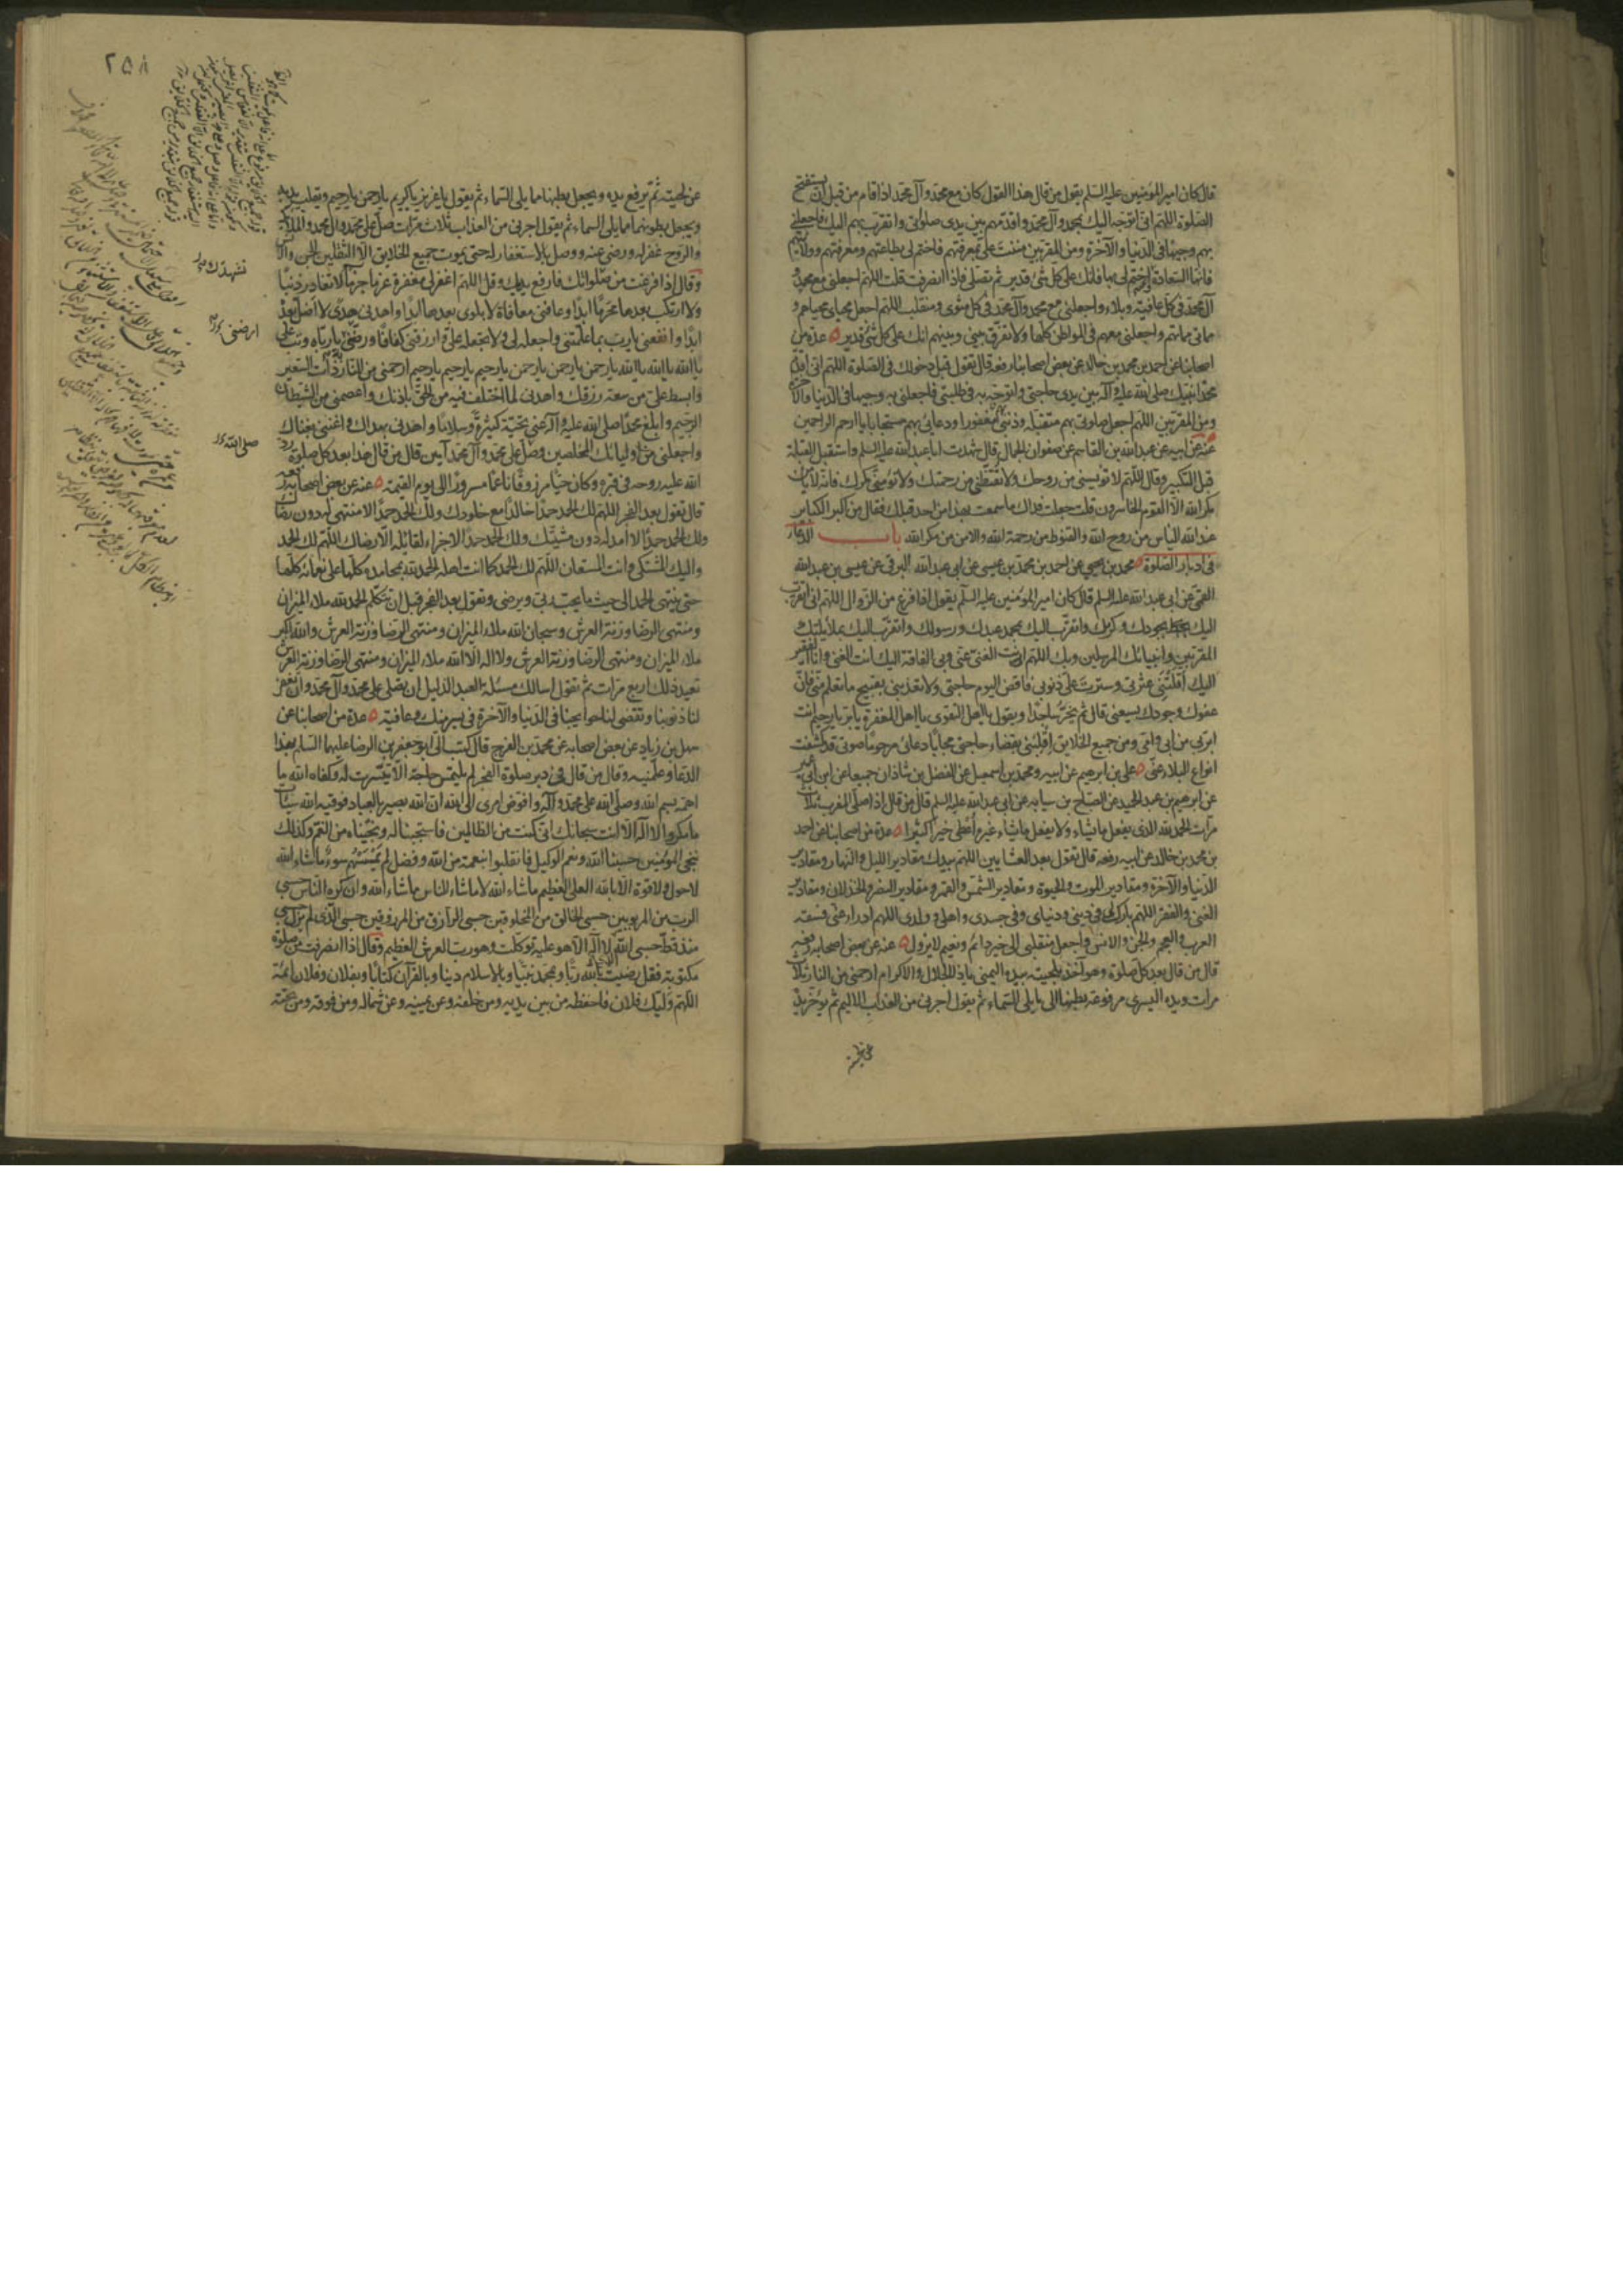 قال كان امير المؤمنين عليه السلم يقول من قال هذا القول كان مع محمد وآل محمد اذا قام من قبل ان يستفتح
الصلوة اللهم انى اتوجه اليك بمحمد وآل محمد واقدمهم بين يدى صلوتى واتقرب بهم اليك فاجعلنى
بهم وجيها فى الدنيا والآخرة ومن المقربين مننت على بمعرفتهم فاختم لى بطاعتهم ومعرفتهم وولايتهم
فانها السعادة اختم لى بها فانك على كل شئ قدير ثم تصلى فاذا انصرفت قلت اللهم اجعلنى مع محمد و
آل محمد فى كل عافية وبلاء واجعلنى مع محمد وآل محمد فى كل مثوى ومنقلب اللهم اجعل محياى محياهم و
مماتى مماتهم واجعلنى معهم فى المواطن كلها ولا تفرق بينى وبينهم انك على كل شئ قدير عدة من
اصحابنا عن احمد بن محمد بن خالد عن بعض اصحابنا رفعه قال تقول قبل دخولك فى الصلوة اللهم انى اقدم
محمدا نبيك صلى الله عليه وآله بين يدى حاجتى واتوجه به فى طلبتى فاجعلنى به وجيها فى الدنيا والآخرة
ومن المقربين اللهم اجعل صلوتى بهم متقبلة وذنبى بهم مغفورا ودعائى بهم مستجابا يا ارحم الراحمين
عنه عن ابيه عن عبد الله بن القاسم عن صفوان الجمال قال شهدت ابا عبد الله عليه السلم واستقبل القبلة
قبل التكبير وقال اللهم لا تؤيسنى من روحك ولا تقنطنى من رحمتك ولا تؤمنى مكرك فانه لا يأمن
مكر الله الا القوم الخاسرون قلت جعلت فداك ما سمعت بهذا من احد قبلك فقال من اكبر الكباير
عند الله الياس من روح الله والقنوط من رحمة الله والامن من مكر الله باب الدعاء
فى ادبار الصلوة محمد بن يحيى عن احمد بن محمد بن عيسى عن ابى عبد الله البرقى عن عيسى بن عبد الله
القمى عن ابى عبد الله عليه السلم قال كان امير المؤمنين عليه السلم يقول اذا فرغ من الزوال اللهم انى اتقرب
اليك بجودك وكرمك واتقرب اليك بمحمد عبدك ورسولك واتقرب اليك بملائكتك
المقربين وانبيائك المرسلين وبك اللهم انت الغنى عنى وبى الفاقة اليك انت الغنى وانا الفقير
اليك اقلتنى عثرتى وسترت على ذنوبى فاقض اليوم حاجتى ولا تعذبنى بقبيح ما تعلم منى فان
عفوك وجودك يسعنى قال ثم يخر ساجدا ويقول يا اهل التقوى يا اهل المغفرة يا بر يا رحيم انت
ابر بى من ابى وامى ومن جميع الخلايق اقلبنى بقضاء حاجتى مجابا دعائى مرحوما صوتى قد كشفت
انواع البلاء عنى على بن ابرهيم عن ابيه ومحمد بن اسمعيل عن الفضل بن شاذان جميعا عن ابن ابى عمير
عن ابرهيم بن عبد الحميد عن الصباح بن سيابه عن ابى عبد الله عليه السلم قال من قال اذا صلى المغرب ثلاث
مرات الحمد لله الذى يفعل ما يشاء ولا يفعل ما يشاء غيره أعطى خيرا كثيرا عدة من اصحابنا عن احمد
بن محمد بن خالد عن ابيه رفعه قال تقول بعد العشايين اللهم بيدك مقادير الليل والنهار ومقادير
الدنيا والآخرة ومقادير الموت والحيوة ومقادير الشمس والقمر ومقادير النصر والخذلان ومقادير
الغنى والفقر اللهم بارك لى فى دينى ودنياى وفى جسدى واهلى وولدى اللهم ادرا عنى فسقة
العرب والعجم والجن والانس واجعل منقلبى الى خير دائم ونعيم لا يزول عنه عن بعض اصحابه رفعه
قال من قال بعد كل صلوة وهو آخذ بلحيته بيده اليمنى يا ذا الجلال والاكرام ارحمنى من النار ثلاث
مرات ويده اليسرى مرفوعة بطنها الى ما يلى السماء ثم يقول اجرنى من العذاب الاليم ثم يؤخر يده
عن لحيته
٢٥٨
عن لحيته ثم يرفع يده ويجعل بطنها مما يلى السماء ثم يقول يا عزيز يا كريم يا رحمن يا رحيم ويقلب يديه
ويجعل بطونهما مما يلى السماء ثم يقول اجرنى من العذاب ثلاث مرات صل على محمد وآل محمد والملائكة
والروح غفر له ورضى عنه ووصل بالاستغفار له حتى يموت جميع الخلايق الا الثقلين الجن والانس
وقال اذا فرغت من صلواتك فارفع يديك وقل اللهم اغفر لى مغفرة عزما جزما لا تغادر ذنبا
ولا ارتكب بعدها محرما ابدا وعافنى معافاة لا بلوى بعدها ابدا واهدنى هدى لا اضل بعده
ابدا وانفعنى يا رب بما علمتنى واجعله لى ولا تجعله على وارزقنى كفافا ورضنى به يا رباه وتب على
يا الله يا الله يا الله يا رحمن يا رحمن يا رحمن يا رحيم يا رحيم يا رحيم ارحمنى من النار ذات السعير
وابسط على من سعة رزقك واهدنى لما اختلف فيه من الحق باذنك واعصمنى من الشيطان
الرجيم وابلغ محمدا صلى الله عليه وآله عنى تحية كثيرة وسلاما واهدنى بهداك واغننى بغناك
واجعلنى من اوليائك المخلصين وصل على محمد وآل محمد آمين قال من قال هذا بعد كل صلوة رد
الله عليه روحه فى قبره وكان حيا مرزوقا ناعما مسرورا الى يوم القيمة عنه عن بعض اصحابه رفعه
قال تقول بعد الفجر اللهم لك الحمد حمدا خالدا مع خلودك ولك الحمد حمدا لا منتهى له دون رضاك
ولك الحمد حمدا لا امد له دون مشيتك ولك الحمد حمدا لا جزاء لقائله الا رضاك اللهم لك الحمد
واليك المشتكى وانت المستعان اللهم لك الحمد كما انت اهله الحمد لله بمحامده كلها على نعمائه كلها
حتى ينتهى الحمد الى حيث ما يحب ربى ويرضى وتقول بعد الفجر قبل ان تتكلم الحمد لله ملاء الميزان
ومنتهى الرضا وزنة العرش وسبحان الله ملاء الميزان ومنتهى الرضا وزنة العرش والله اكبر
ملاء الميزان ومنتهى الرضا وزنة العرش ولا اله الا الله ملاء الميزان ومنتهى الرضا وزنة العرش
تعيد ذلك اربع مرات ثم تقول اسالك مسئلة العبد الذليل ان تصلى على محمد وآل محمد وان تغفر
لنا ذنوبنا وتقضى لنا حوايجنا فى الدنيا والآخرة فى يسر منك وعافية عدة من اصحابنا عن
سهل بن زياد عن بعض اصحابه عن محمد بن الفرج قال كتب الى ابو جعفر بن الرضا عليهما السلم بهذا
الدعاء وعلمنيه وقال من قال فى دبر صلوة الفجر لم يلتمس حاجة الا تيسرت له وكفاه الله ما
اهمه بسم الله وصلى الله على محمد وآله وافوض امرى الى الله ان الله بصير بالعباد فوقيه الله سيئات
ما مكروا لا اله الا انت سبحانك انى كنت من الظالمين فاستجبنا له ونجيناه من الغم وكذلك
ننجى المؤمنين حسبنا الله ونعم الوكيل فانقلبوا بنعمة من الله وفضل لم يمسسهم سوء ما شاء الله
لا حول ولا قوة الا بالله العلى العظيم ما شاء الله لا ما شاء الناس ما شاء الله وان كره الناس حسبى
الرب من المربوبين حسبى الخالق من المخلوقين حسبى الرازق من المرزوقين حسبى الذى لم يزل حسبى
منذ قط حسبى الله لا اله الا هو عليه توكلت وهو رب العرش العظيم وقال اذا انصرفت من صلوة
مكتوبة فقل رضيت بالله ربا وبمحمد نبيا وبالاسلام دينا وبالقرآن كتابا وبفلان وفلان ائمة
اللهم وليك فلان فاحفظه من بين يديه ومن خلفه وعن يمينه وعن شماله ومن فوقه ومن تحته
ارضنى
صلى الله